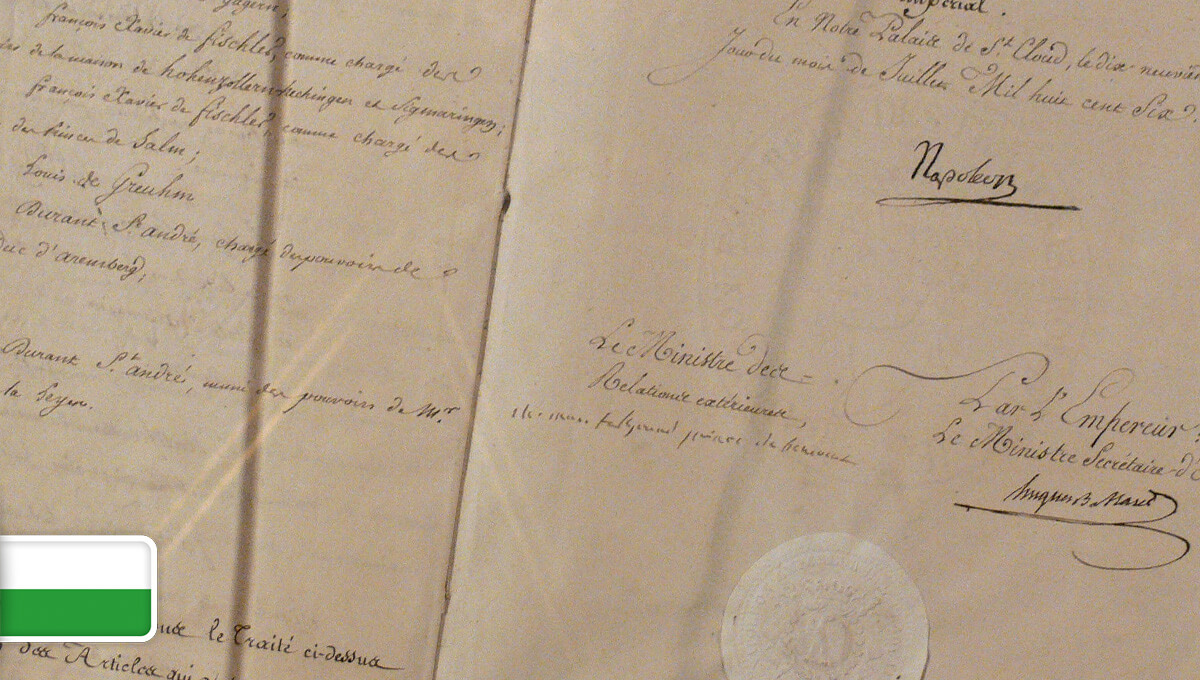 Gagern,
françois Xavier de fischler, comme chargé des
de la maison de hohenzollern-hechingen et Sigmaringen;
françois Xavier de fischler, comme chargé des
des Princes de Salm;
Louis de Greuhm
Durant St. andré, chargé des pouvoirs de
duc d'aremberg;
Durant St. andré, muni des pouvoirs de Mr.
la Leyen.
le Traité ci-dessus
des Articles qui
Impérial.
En Notre Palais de St. Cloud, le dix-neuvième
Jour du mois de Juillet Mil huit cent Six.
Napoleon
Le Ministre des
Relations extérieures,
ch. mau. talleyrand prince de benevent
Par l'Empereur:
Le Ministre Secrétaire d'E
hugues B. Maret